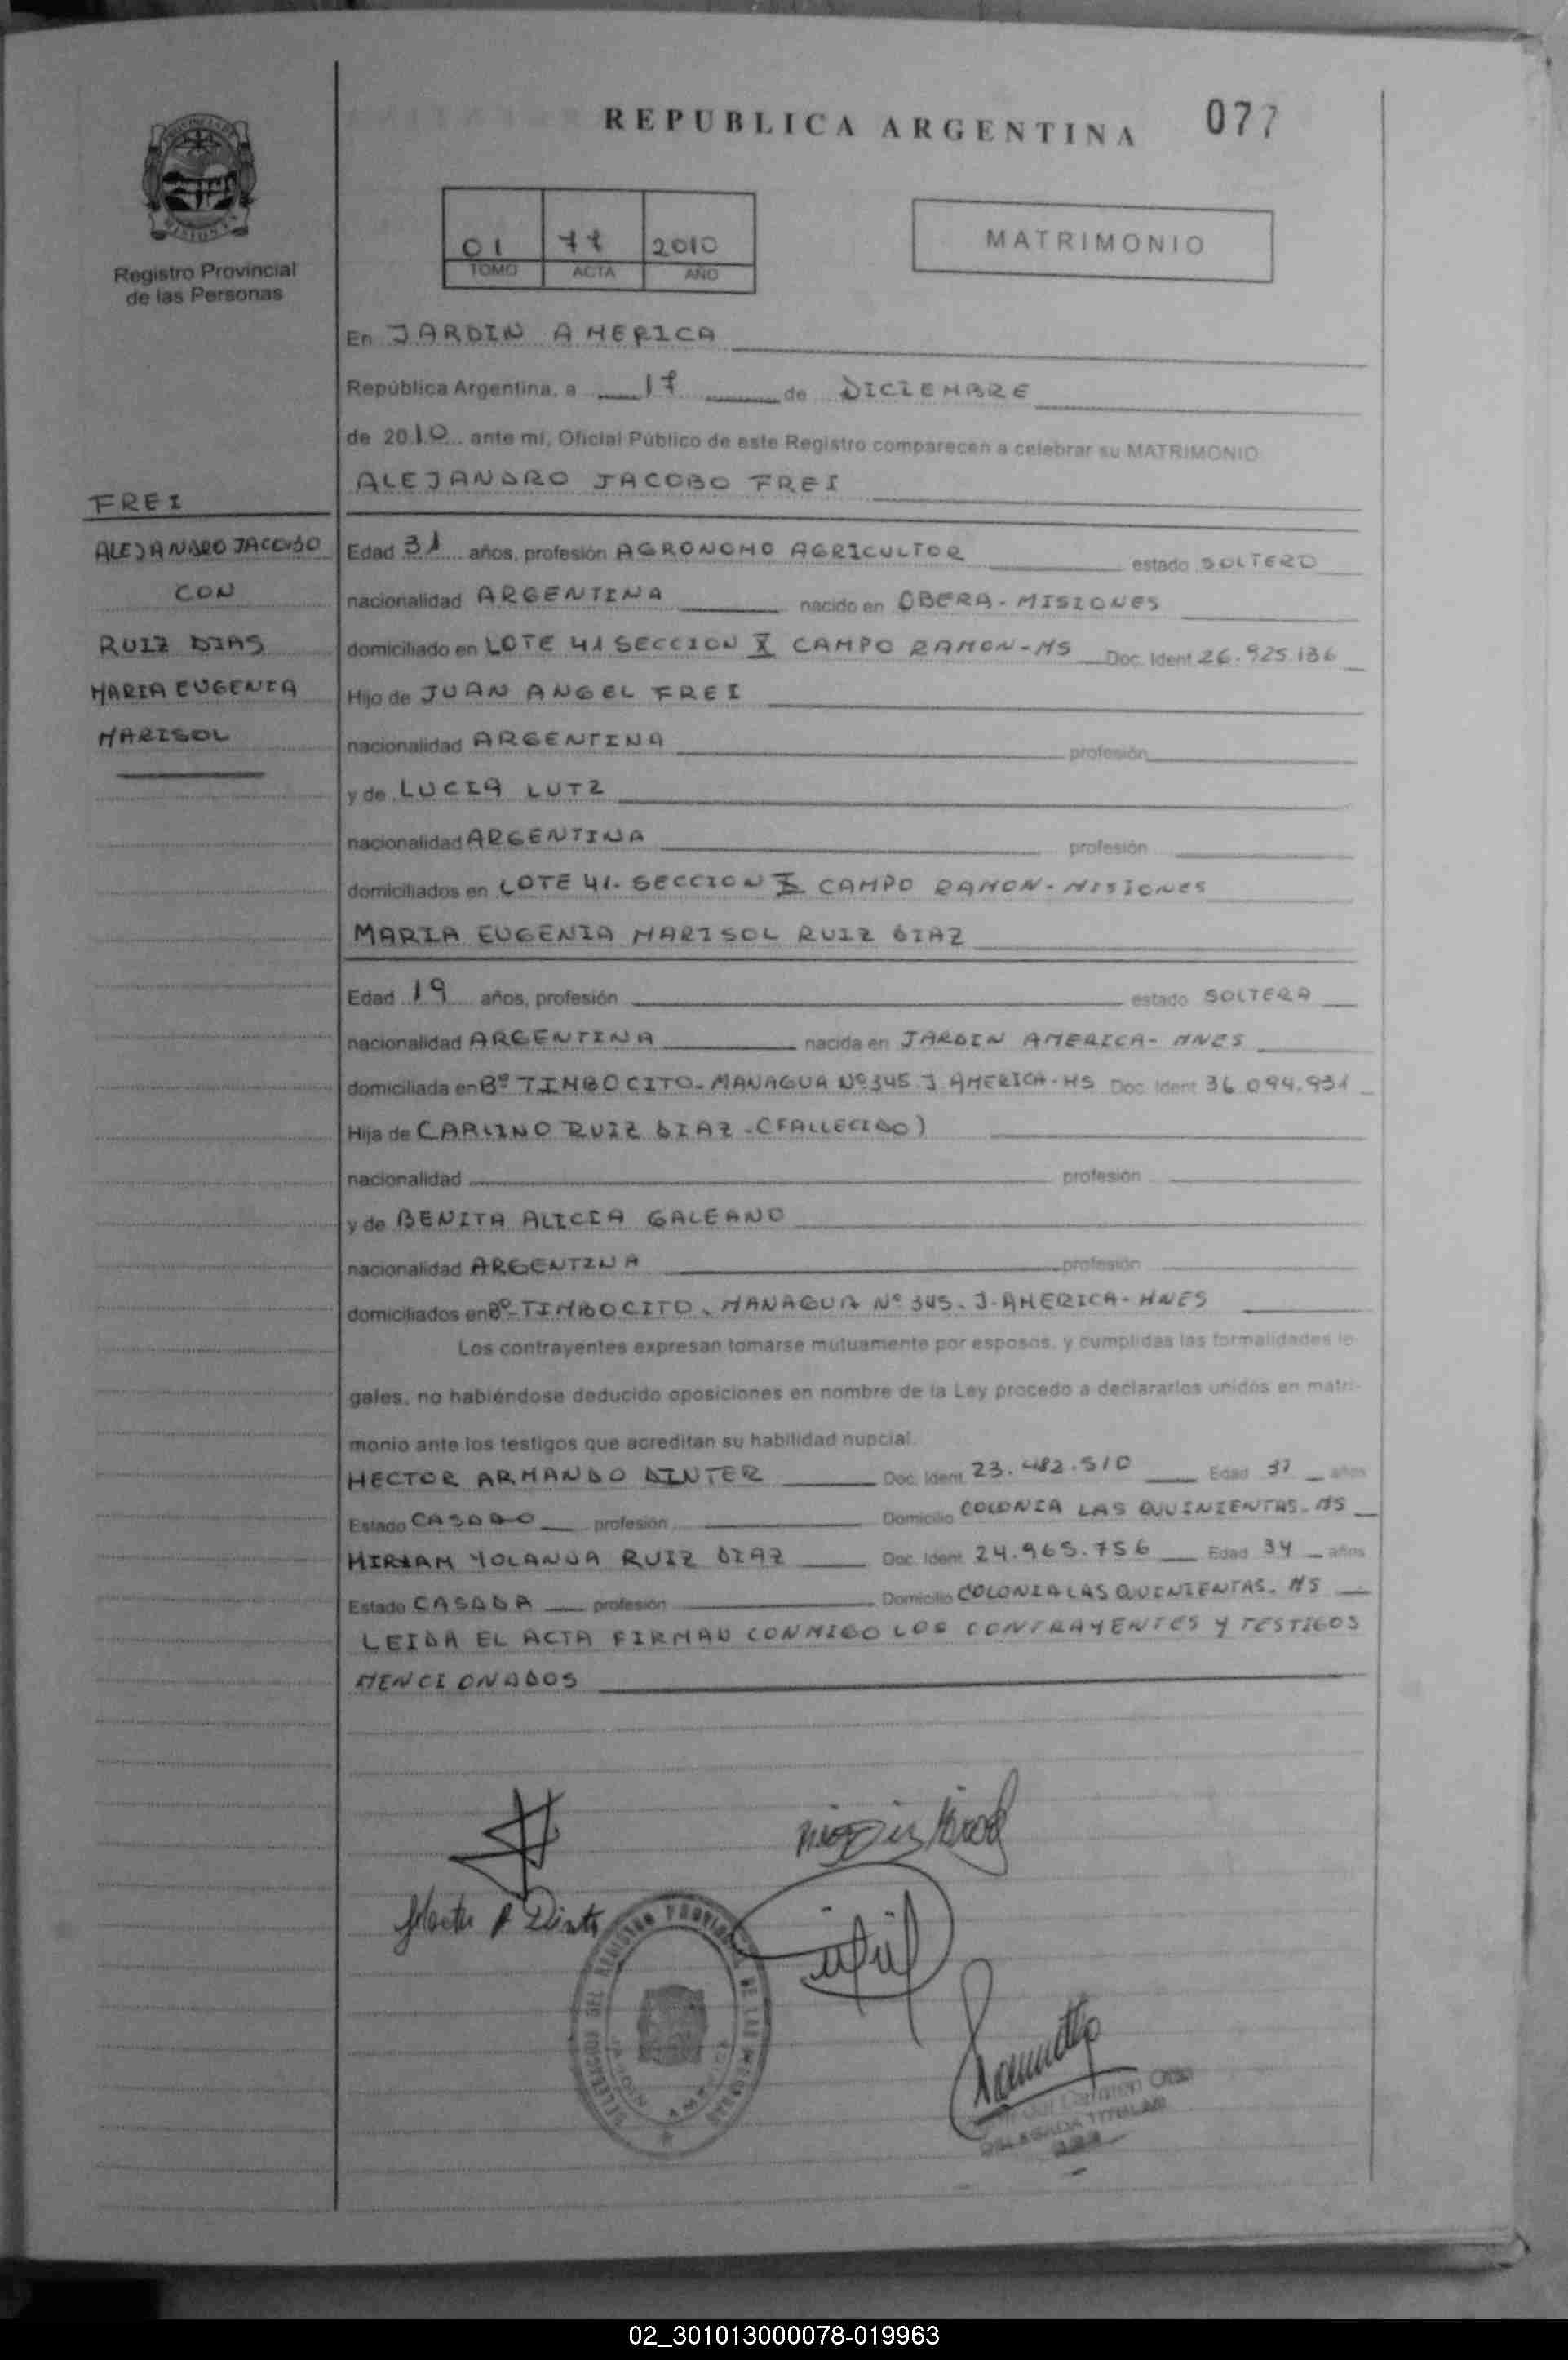 REPUBLICA ARGENTINA
077
Registro Provincial
de las Personas
01 77 2010
TOMO ACTA AÑO
MATRIMONIO
En JARDIN AMERICA
República Argentina, a 17 de DICIEMBRE
de 2010 ante mí, Oficial Público de este Registro comparecen a celebrar su MATRIMONIO
ALEJANDRO JACOBO FREI
FREI
ALEJANDRO JACOBO
CON
RUIZ DIAS
MARIA EUGENIA
MARISOL
Edad 31 años, profesión AGRONOMO AGRICULTOR estado SOLTERO
nacionalidad ARGENTINA nacido en OBERA - MISIONES
domiciliado en LOTE 41 SECCION X CAMPO RAMON - MS Doc. Ident 26.925.136
Hijo de JUAN ANGEL FREI
nacionalidad ARGENTINA profesión
y de LUCIA LUTZ
nacionalidad ARGENTINA profesión
domiciliados en LOTE 41. SECCION X CAMPO RAMON - MISIONES
MARIA EUGENIA MARISOL RUIZ DIAZ
Edad 19 años, profesión estado SOLTERA
nacionalidad ARGENTINA nacida en JARDIN AMERICA - MNES
domiciliada en Bº TIMBOCITO - MANAGUA Nº 345 J AMERICA - MS Doc. Ident 36.094.931
Hija de CARLINO RUIZ DIAZ - (FALLECIDO)
nacionalidad profesión
y de BENITA ALICIA GALEANO
nacionalidad ARGENTINA profesión
domiciliados en Bº TIMBOCITO - MANAGUA Nº 345 - J. AMERICA - MNES
Los contrayentes expresan tomarse mutuamente por esposos, y cumplidas las formalidades le-
gales, no habiéndose deducido oposiciones en nombre de la Ley procedo a declararlos unidos en matri-
monio ante los testigos que acreditan su habilidad nupcial.
HECTOR ARMANDO DINTER Doc. Ident 23.482.510 Edad 37 años
Estado CASADO profesión Domicilio COLONIA LAS QUINIENTAS - MS
MIRIAM YOLANDA RUIZ DIAZ Doc. Ident 24.965.756 Edad 34 años
Estado CASADA profesión Domicilio COLONIA LAS QUINIENTAS - MS
LEIDA EL ACTA FIRMAN CONMIGO LOS CONTRAYENTES Y TESTIGOS
MENCIONADOS
DELEGADA TITULAR
02_301013000078-019963